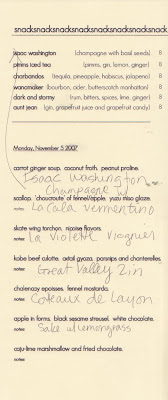 snackssnackssnackssnackssnackssnackssnacks
isaac washington (champagne with basil seeds) 8
pimms iced tea (pimms, gin, lemon, ginger) 8
chorbandos (tequila, pineapple, habiscus, jalapeno) 8
wanamaker (bourbon, cider, butterscotch manhattan) 8
dark and stormy (rum, bitters, spices, lime, ginger) 8
aunt jean (gin, grapefruit juice and grapefruit candy) 8
Monday, November 5 2007
carrot ginger soup. coconut froth. peanut praline.
notes: Isaac Washington
Champagne
scallop. 'choucroute' of fennel/apple. yuzu miso glaze.
notes: LaCala vermentino
skate wing torchon. nicoise flavors.
notes: La violette viognier
kobe beef culotte. oxtail gyoza. parsnips and chanterelles.
notes: Great Valley Zin
chatenoay epoisses. fennel mostarda.
notes: Coteaux de Layon
apple in forms. black sesame streusel. white chocolate.
notes: Sake w/lemongrass
coju-lime marshmallow and fried chocolate.
notes: